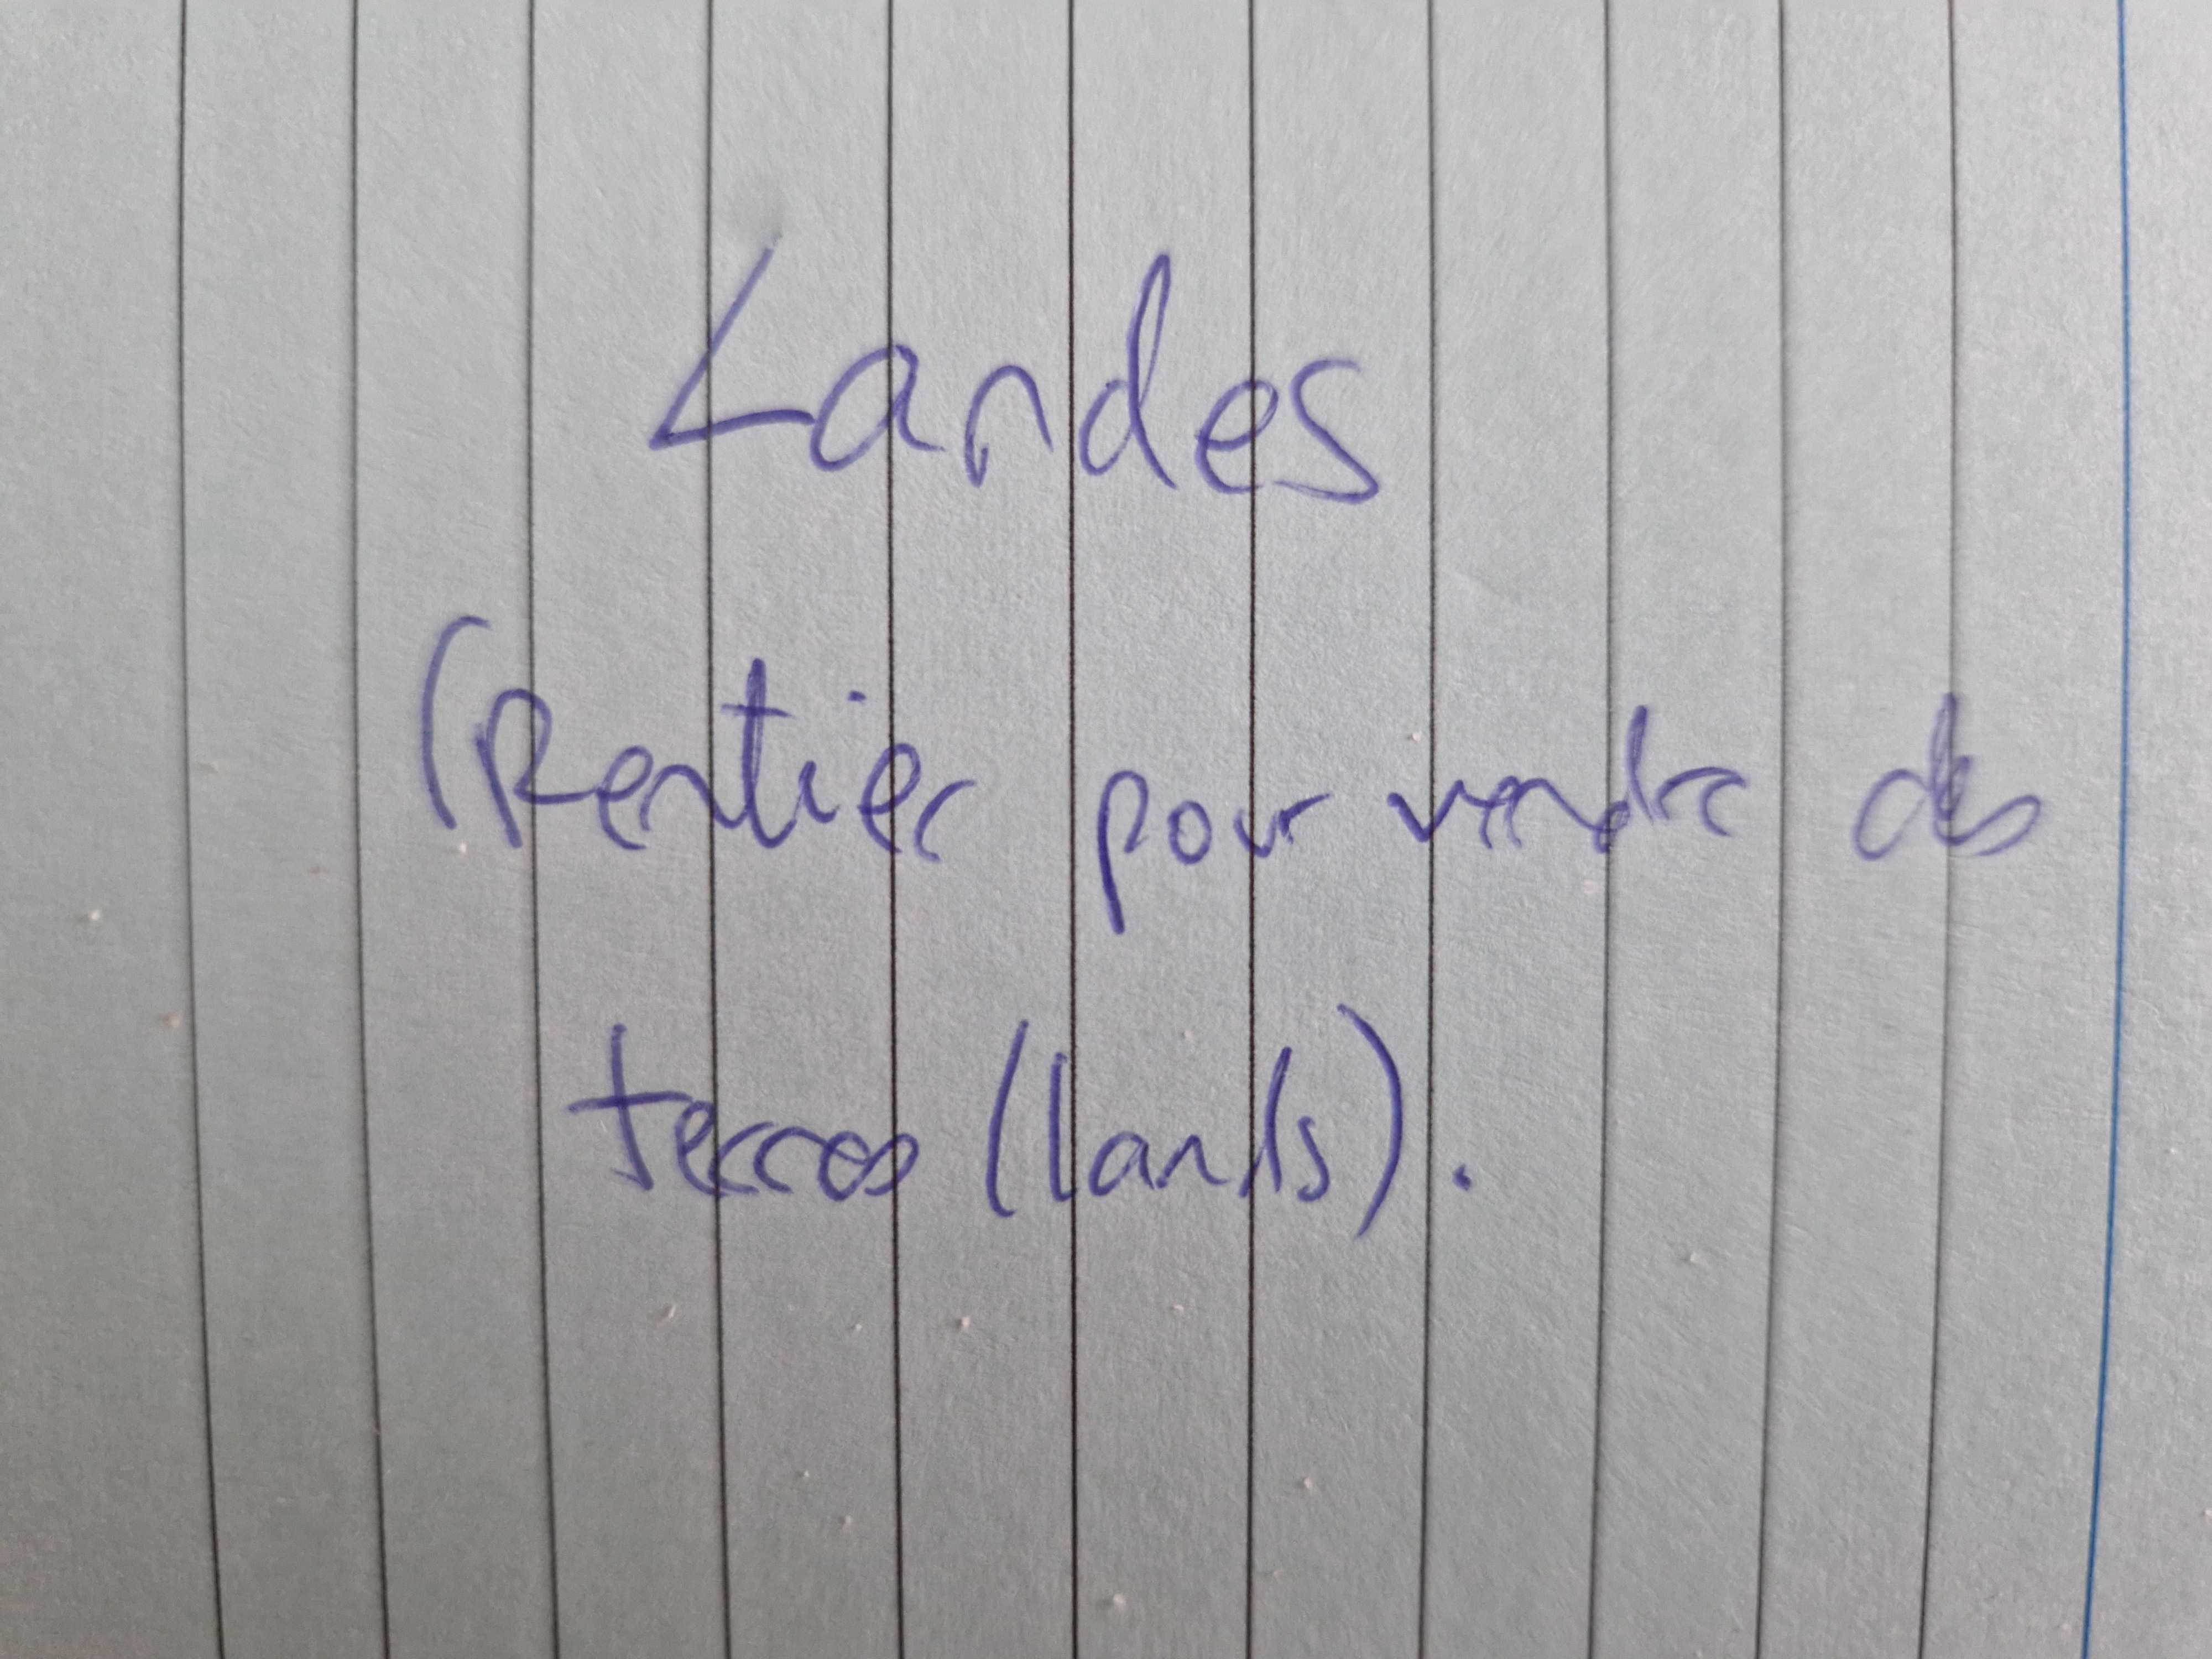 Landes
(Rentier pour vendre des
terres (lands).